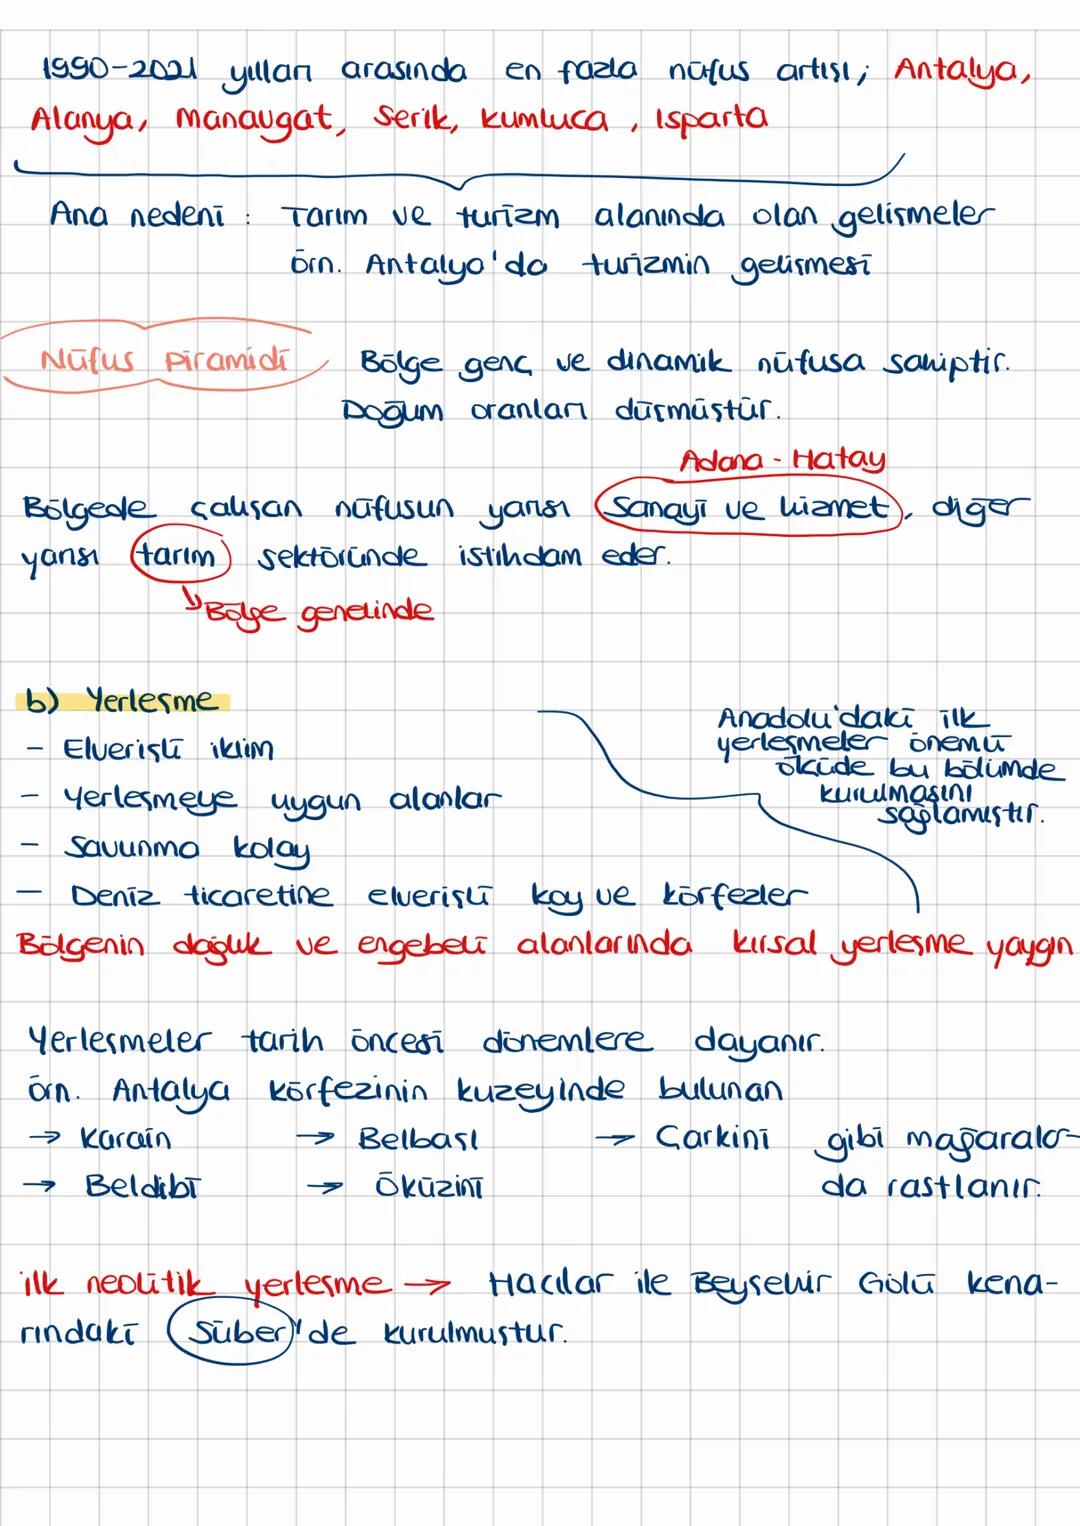 1990-2021 yılları arasında en fazla nüfus artışı; Antalya,
Alanya, Manavgat, Serik, Kumluca, Isparta
Ana nedeni : Tarım ve turizm alanında olan gelişmeler
örn. Antalya'da turizmin gelişmesi
Nüfus piramidi
Bölge genç ve dinamik nüfusa sahiptir.
Doğum oranları düşmüştür.
Adana - Hatay
Bölgede çalışan nüfusun yarısı Sanayi ve hizmet, diğer
yarısı tarım sektöründe istihdam eder.
Bölge genelinde
b) Yerleşme
- Elverişli iklim
- Yerleşmeye uygun alanlar
- Savunma kolay
- Deniz ticaretine elverişli koy ve körfezler
Anadolu'daki ilk
yerleşmeler önemli
ölçüde bu bölümde
kurulmasını
sağlamıştır.
Bölgenin dağlık ve engebeli alanlarında kırsal yerleşme yaygın
Yerleşmeler tarih öncesi dönemlere dayanır.
örn. Antalya körfezinin kuzeyinde bulunan
→ Karain → Belbaşı → Çarkini gibi mağarala-
→ Beldibi → Öküzini da rastlanır.
ilk neolitik yerleşme → Hacılar ile Beyşehir Gölü kena-
rındaki Süber'de kurulmuştur.